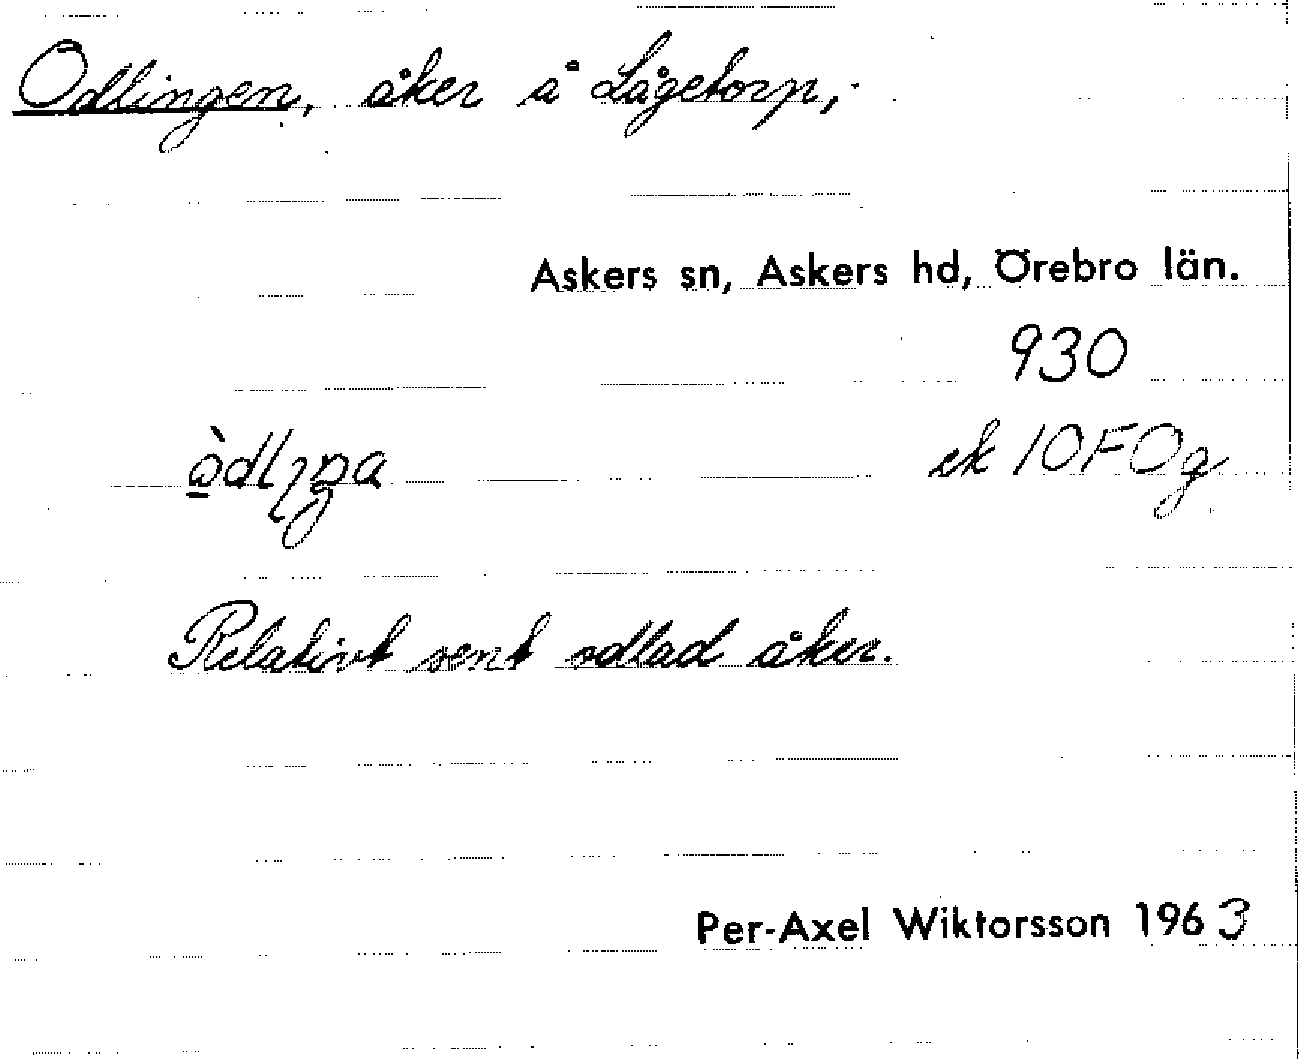 Odlingen, åker å Lågetorp,
Askers sn, Askers hd, Örebro län.
930
ek 10F0g
Relativt sent odlad åker.
Per-Axel Wiktorsson 1963